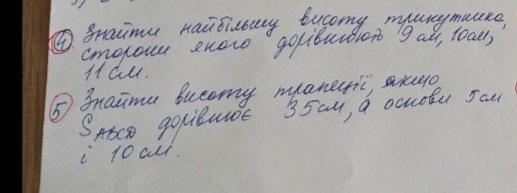 4. Знайти найбільшу висоту трикутника,
сторони якого дорівнюють 9 см, 10 см,
11 см.
5 Знайти висоту трапеції, якщо
SABCD дорівнює 35 см, а основи 5 см
і 10 см.